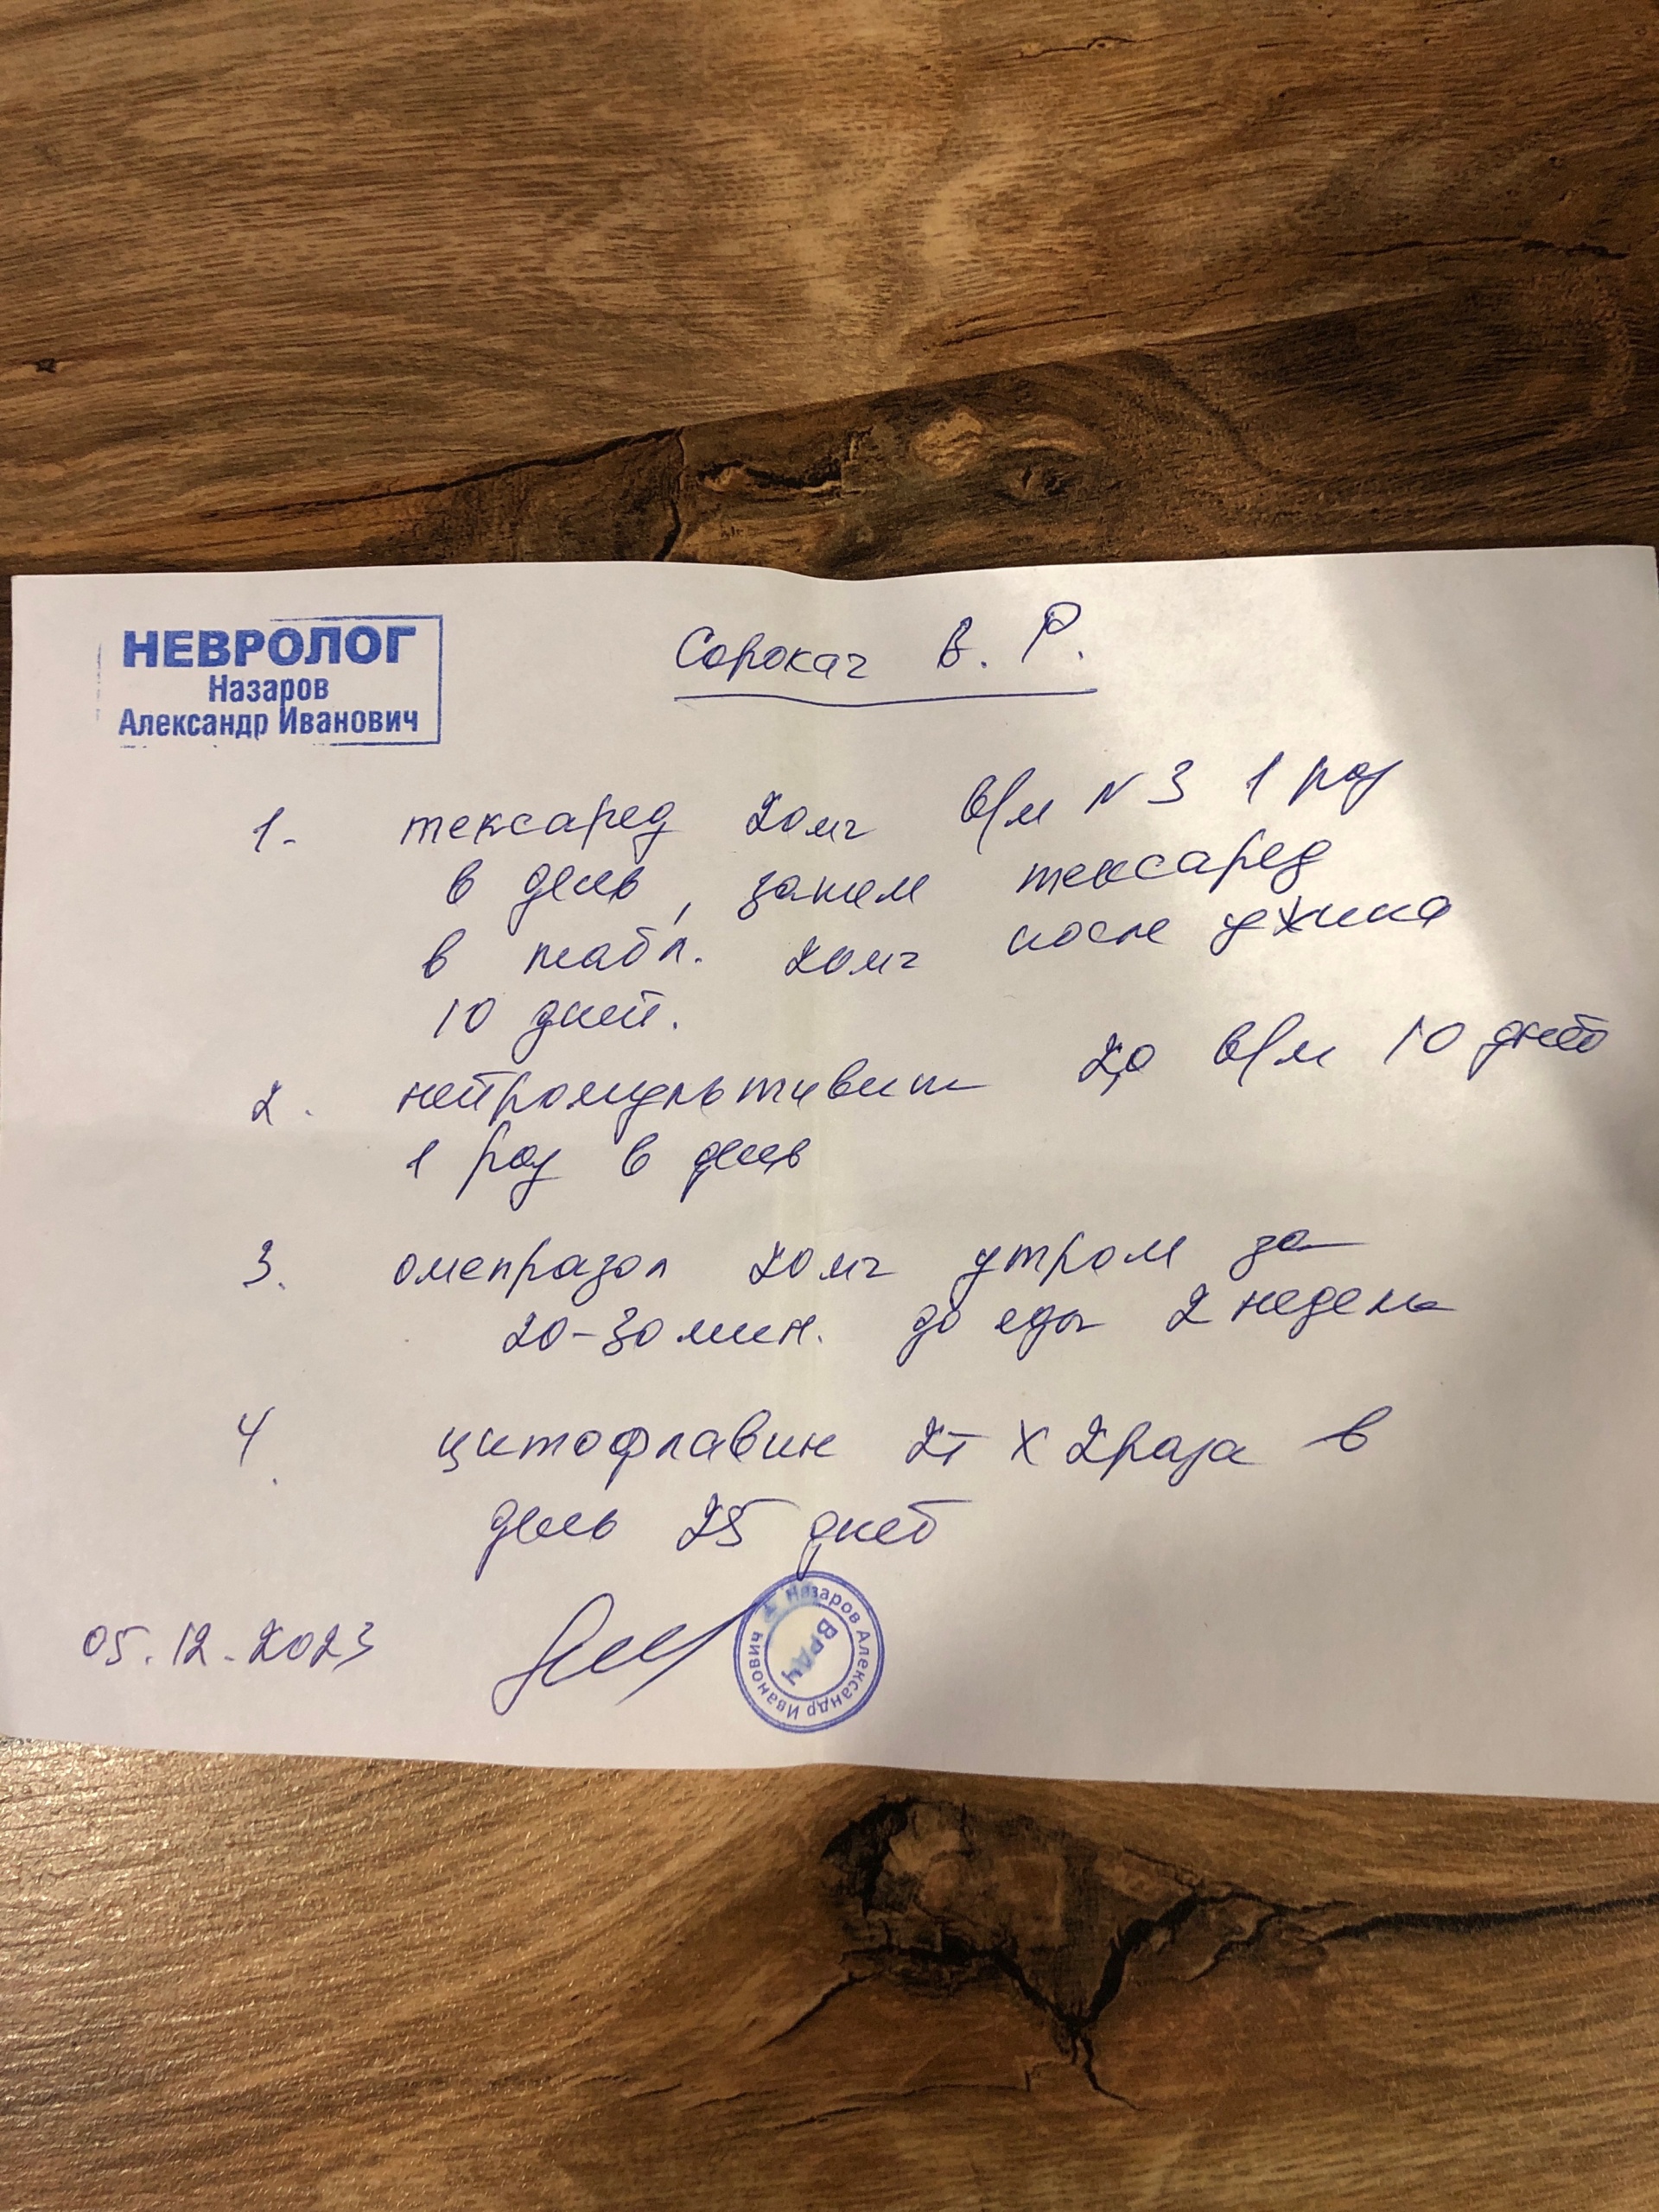 НЕВРОЛОГ
Назаров
Александр Иванович
Сорокач В. Р.
1. тексаред 20мг в/м N3 1 раз
в день, затем тексаред
в табл. 20мг после ужина
10 дней.
2. нейромультивит 2,0 в/м 10 дней
1 раз в день
3. омепразол 20мг утром за
20-30 мин. до еды 2 недели
4. цитофлавин 2т х 2раза в
день 25 дней
05.12.2023
Назаров Александр Иванович
ВРАЧ